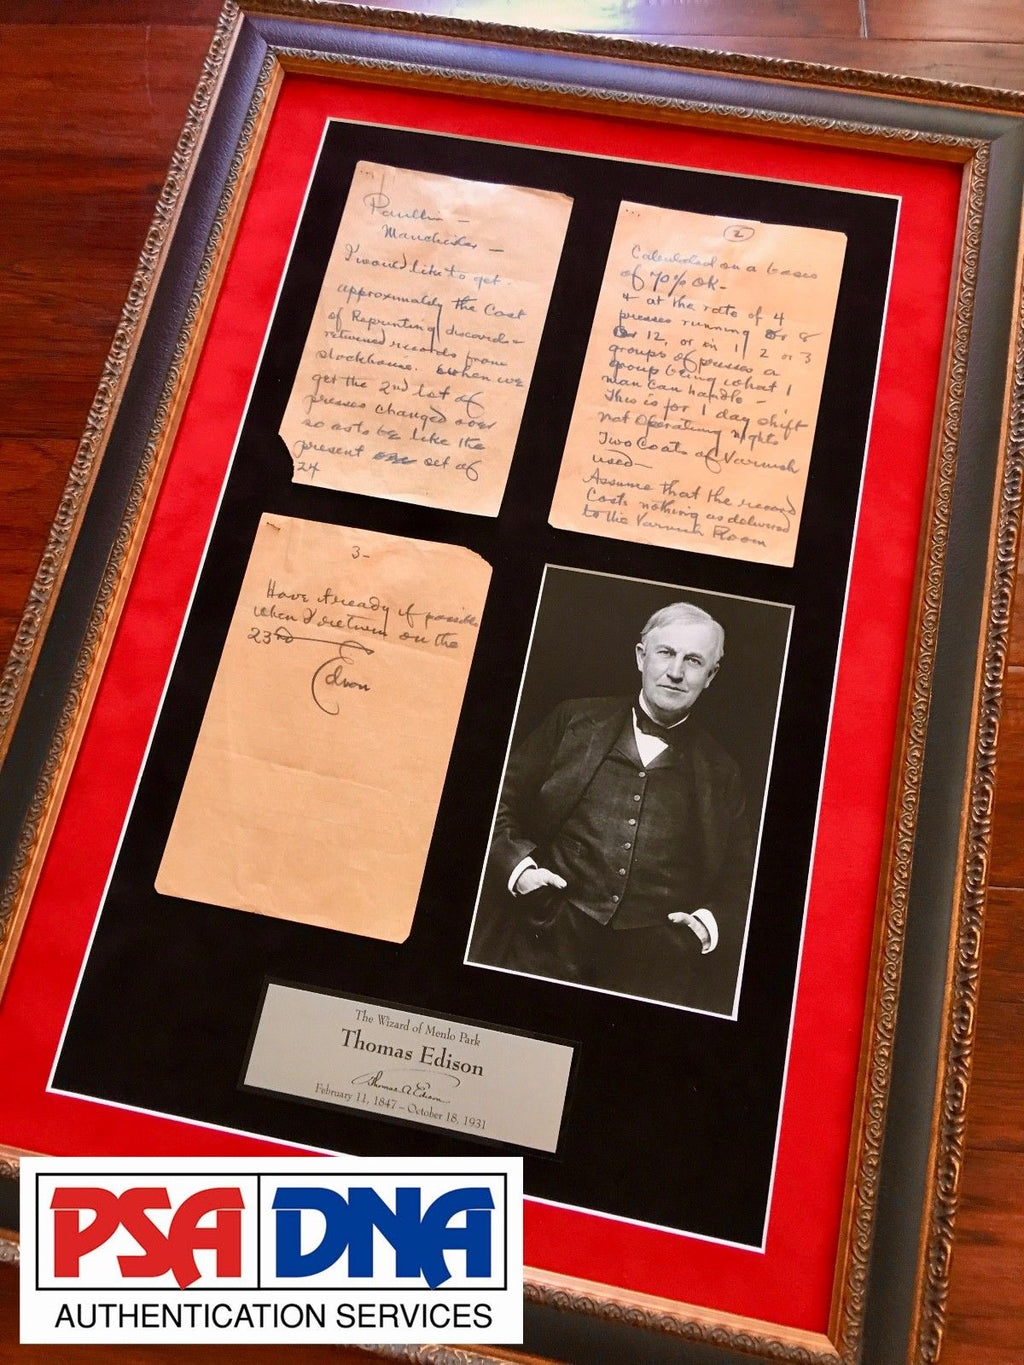 Paullin —
Manchester —
I would like to get
approximately the Cost
of Reprinting discards &
returned records from
stockhouse. When we
get the 2nd lot of
presses changed over
so as to be like the
present set of
24
2
Calculated on a basis
of 70% OK—
& at the rate of 4
presses running or 8
or 12, or in 1, 2 or 3
groups of presses a
group being what 1
man can handle —
This is for 1 day shift
not Operating nights
Two Coats of Varnish
used—
Assume that the record
Costs nothing as delivered
to the Varnish Room
3-
Have ready if possible
when I return on the
23rd
Edison
The Wizard of Menlo Park
Thomas Edison
Thomas A Edison
February 11, 1847 – October 18, 1931
PSA DNA
AUTHENTICATION SERVICES